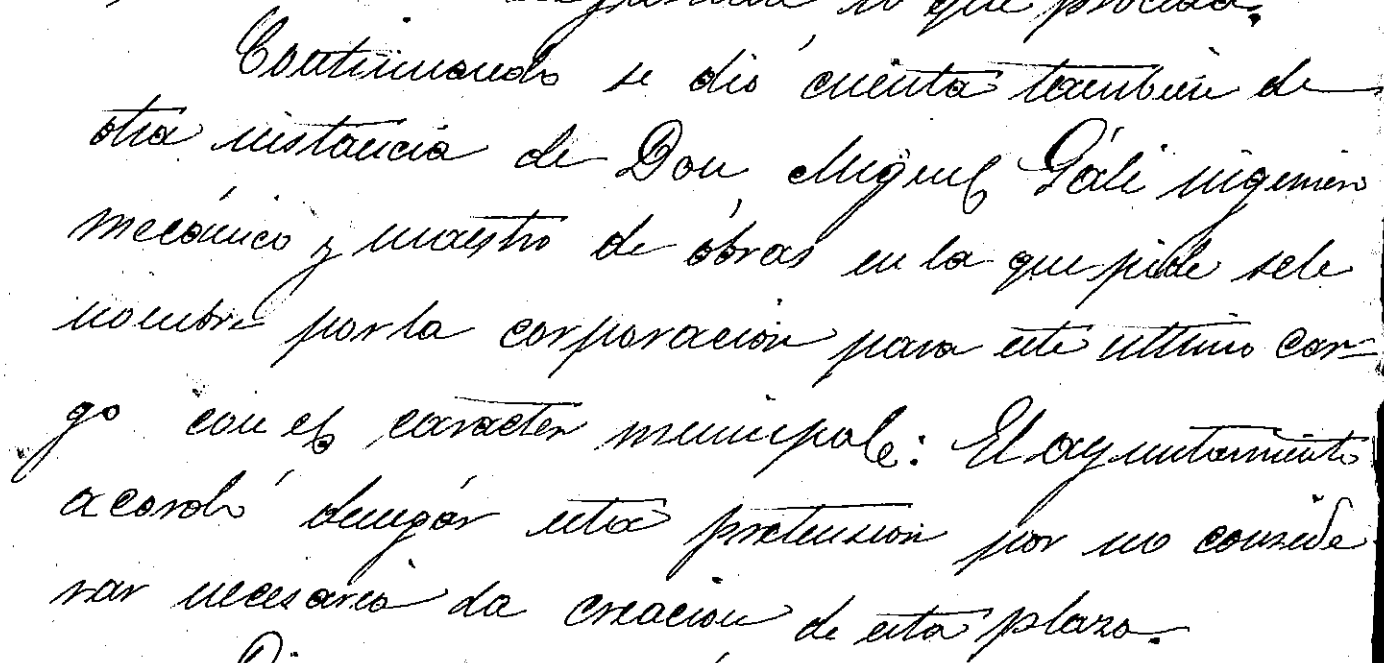 lo que proceda.
Continuando se dió cuenta tambien de
otra instancia de Don Miguel Gáli ingeniero
mecánico y maestro de obras en la que pide sele
nombre por la corporación para este ultimo car-
go con el caracter municipal: El ayuntamiento
acordó denegar esta pretension por no conside
rar necesaria la creacion de esta plaza.